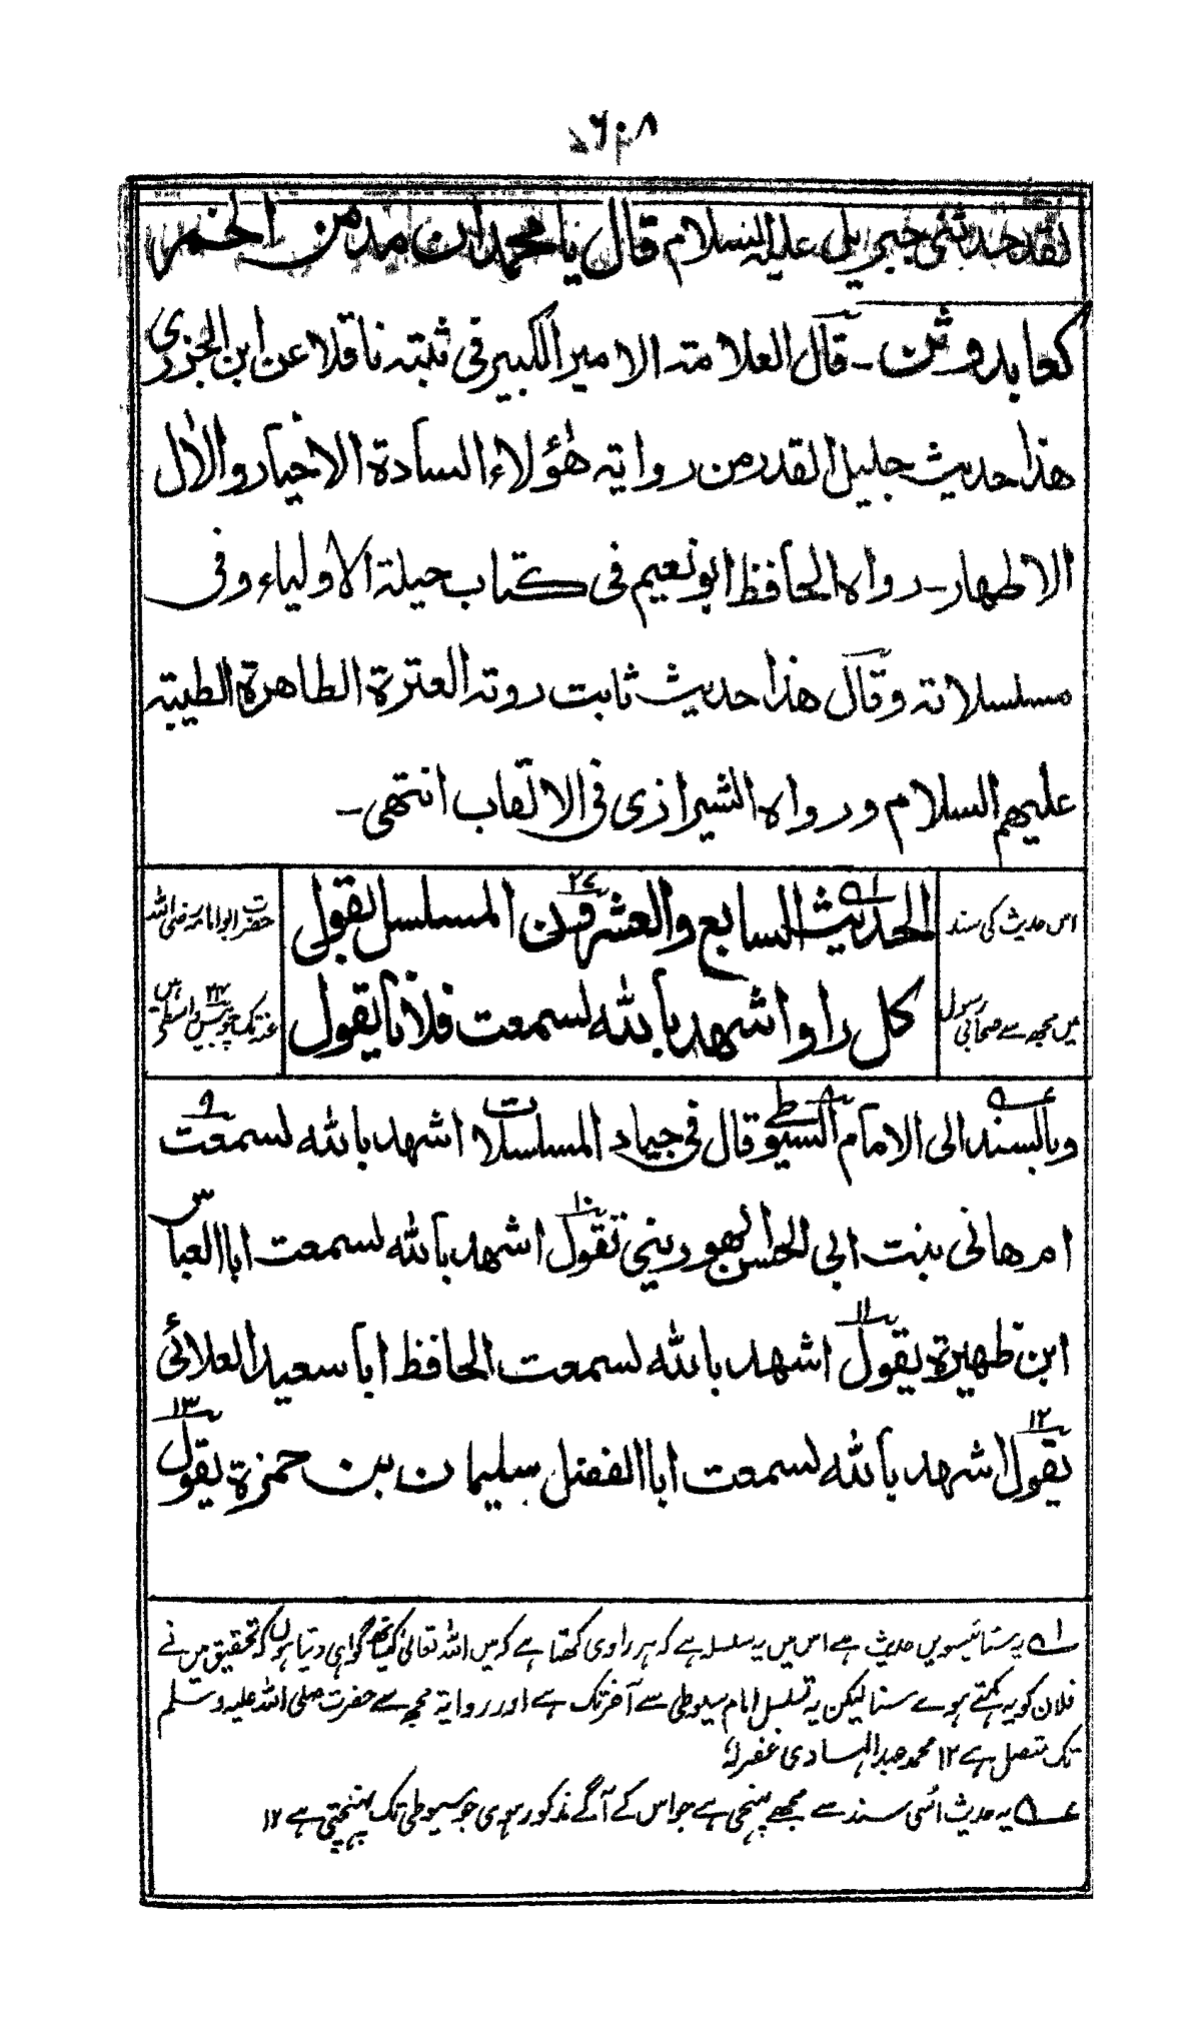 لقد حدثنی جبریل علیہ السلام قال یا محمد ان مدمن الخمر
کعابد وثن ۔ قال العلامۃ الامیر الکبیر فی ثبتہ ناقلا عن ابن الجزری
ھذا حدیث جلیل القدر من روایۃ ھٰؤلاء السادۃ الاخیار والاٰل
الاطھار ۔ رواہ الحافظ ابو نعیم فی کتاب حیلۃ الاولیاء وفی
مسلسلاتہ وقال ھذا حدیث ثابت روتہ العترۃ الطاھرۃ الطیبۃ
علیھم السلام ورواہ الشیرازی فی الالقاب انتھی ۔
الحدیث السابع والعشرون المسلسل بقول
کل راو اشھد باللہ لسمعت فلانا یقول
اس حدیث کی سند
میں مجھ سے صحابی رسول
حضرت ابو امامہ رضی اللہ
عنہ تک چوبیس ۲۴ واسطے ہیں
وبالسند الی الامام السیوطی قال فی جیاد المسلسلات اشھد باللہ لسمعت
ام ھانی بنت ابی الحسن الھورینی تقول اشھد باللہ لسمعت ابا العباس
ابن ظھیرۃ یقول اشھد باللہ لسمعت الحافظ ابا سعید العلائی
یقول اشھد باللہ لسمعت ابا الفضل سلیمان بن حمزۃ یقول
لہ یہ ستائیسویں حدیث ہے اس میں یہ سلسلہ ہے کہ ہر راوی کہتا ہے کہ میں اللہ تعالیٰ کیساتھ گواہی دیتا ہوں کہ تحقیق میں نے
فلان کو یہ کہتے ہوے سنا لیکن یہ تسلسل امام سیوطی سے آخر تک ہے اور روایۃ مجھ سے حضرت صلی اللہ علیہ وسلم
تک متصل ہے ۱۲ محمد عبد الہادی غفرلہ
یہ حدیث اُسی سند سے مجھے پہنچی ہے جو اس کے آگے مذکور ہوی جو سیوطی تک پہنچتی ہے ۱۲